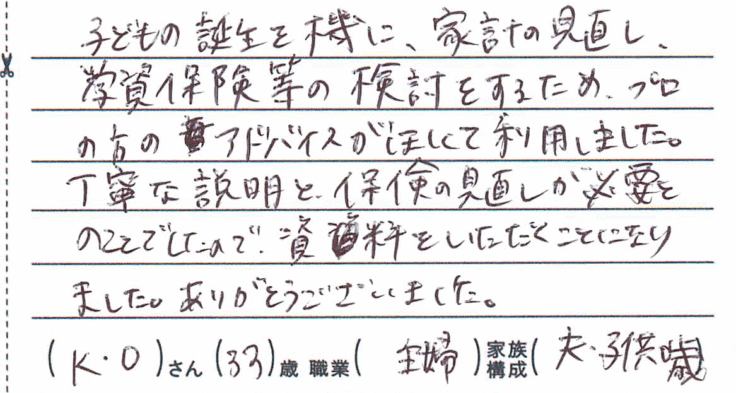 子どもの誕生を機に、家計の見直し、
学資保険等の検討をするため、プロ
の方のアドバイスがほしくて利用しました。
丁寧な説明と、保険の見直しが必要と
のことでしたので、資料をいただくことになり
ました。ありがとうございました。
(K・O)さん(33)歳 職業(主婦)家族構成(夫・子供歳